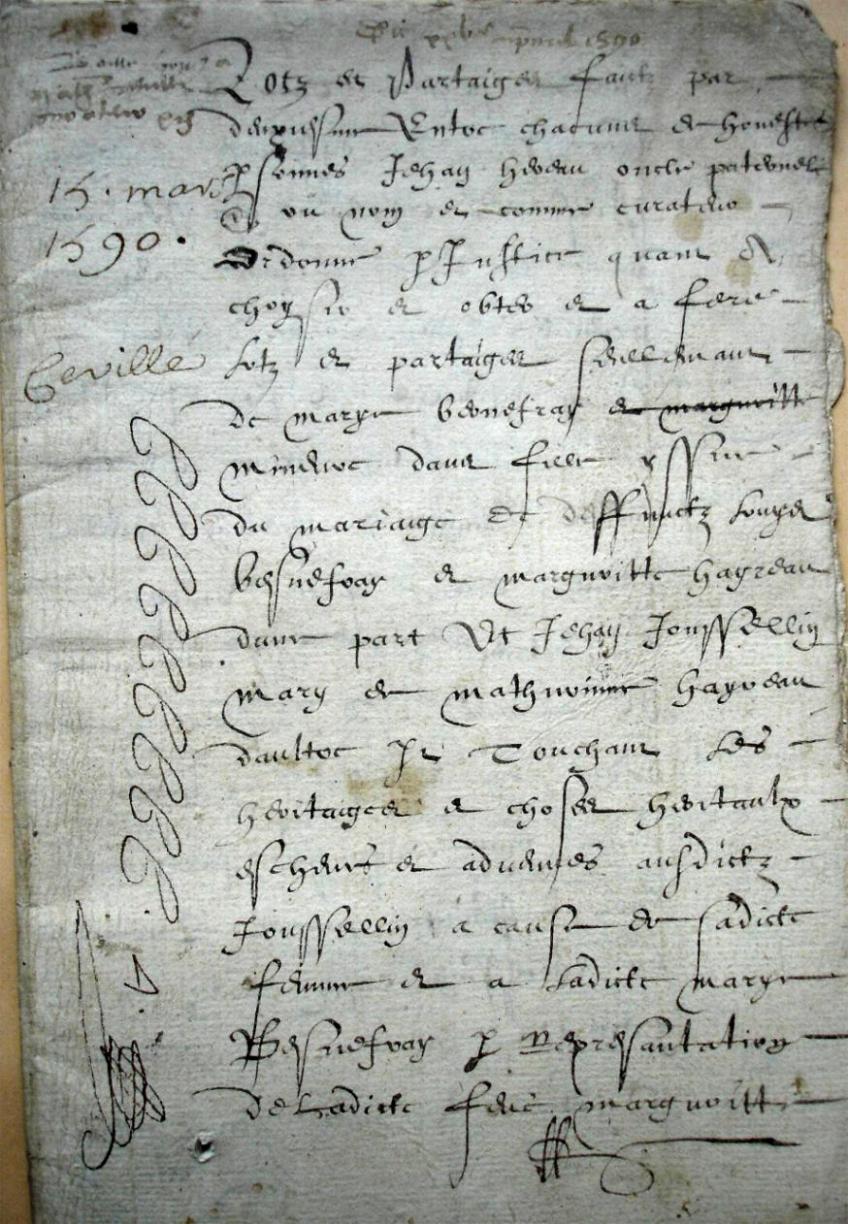 apvril 1590
15. mars
1590.
Ceville
Lotz et Partaiges faictz par
Entre chacuns de honestes
p̲sonnes Jehan heveau oncle paternel
ou nom et comme curateur
Ordonne p Justice quant A
choysir et obter et a fere
Lotz et partaiges seullemant
de marye besnefray et margueritte
myneure dans
du mariaige de deffunctz Louys
besnefray et margueritte hayreau
dune part Et Jehan Jousselin
mary de mathurinne hayreau
daultre p̲t Touchant Les
heritaiges et choses heritaulx
escheues et advenues ausdictz
Jousselin a cause de sadicte
femme et a Ladicte marye
Besnefray p Represantation
de Ladicte feue margueritte